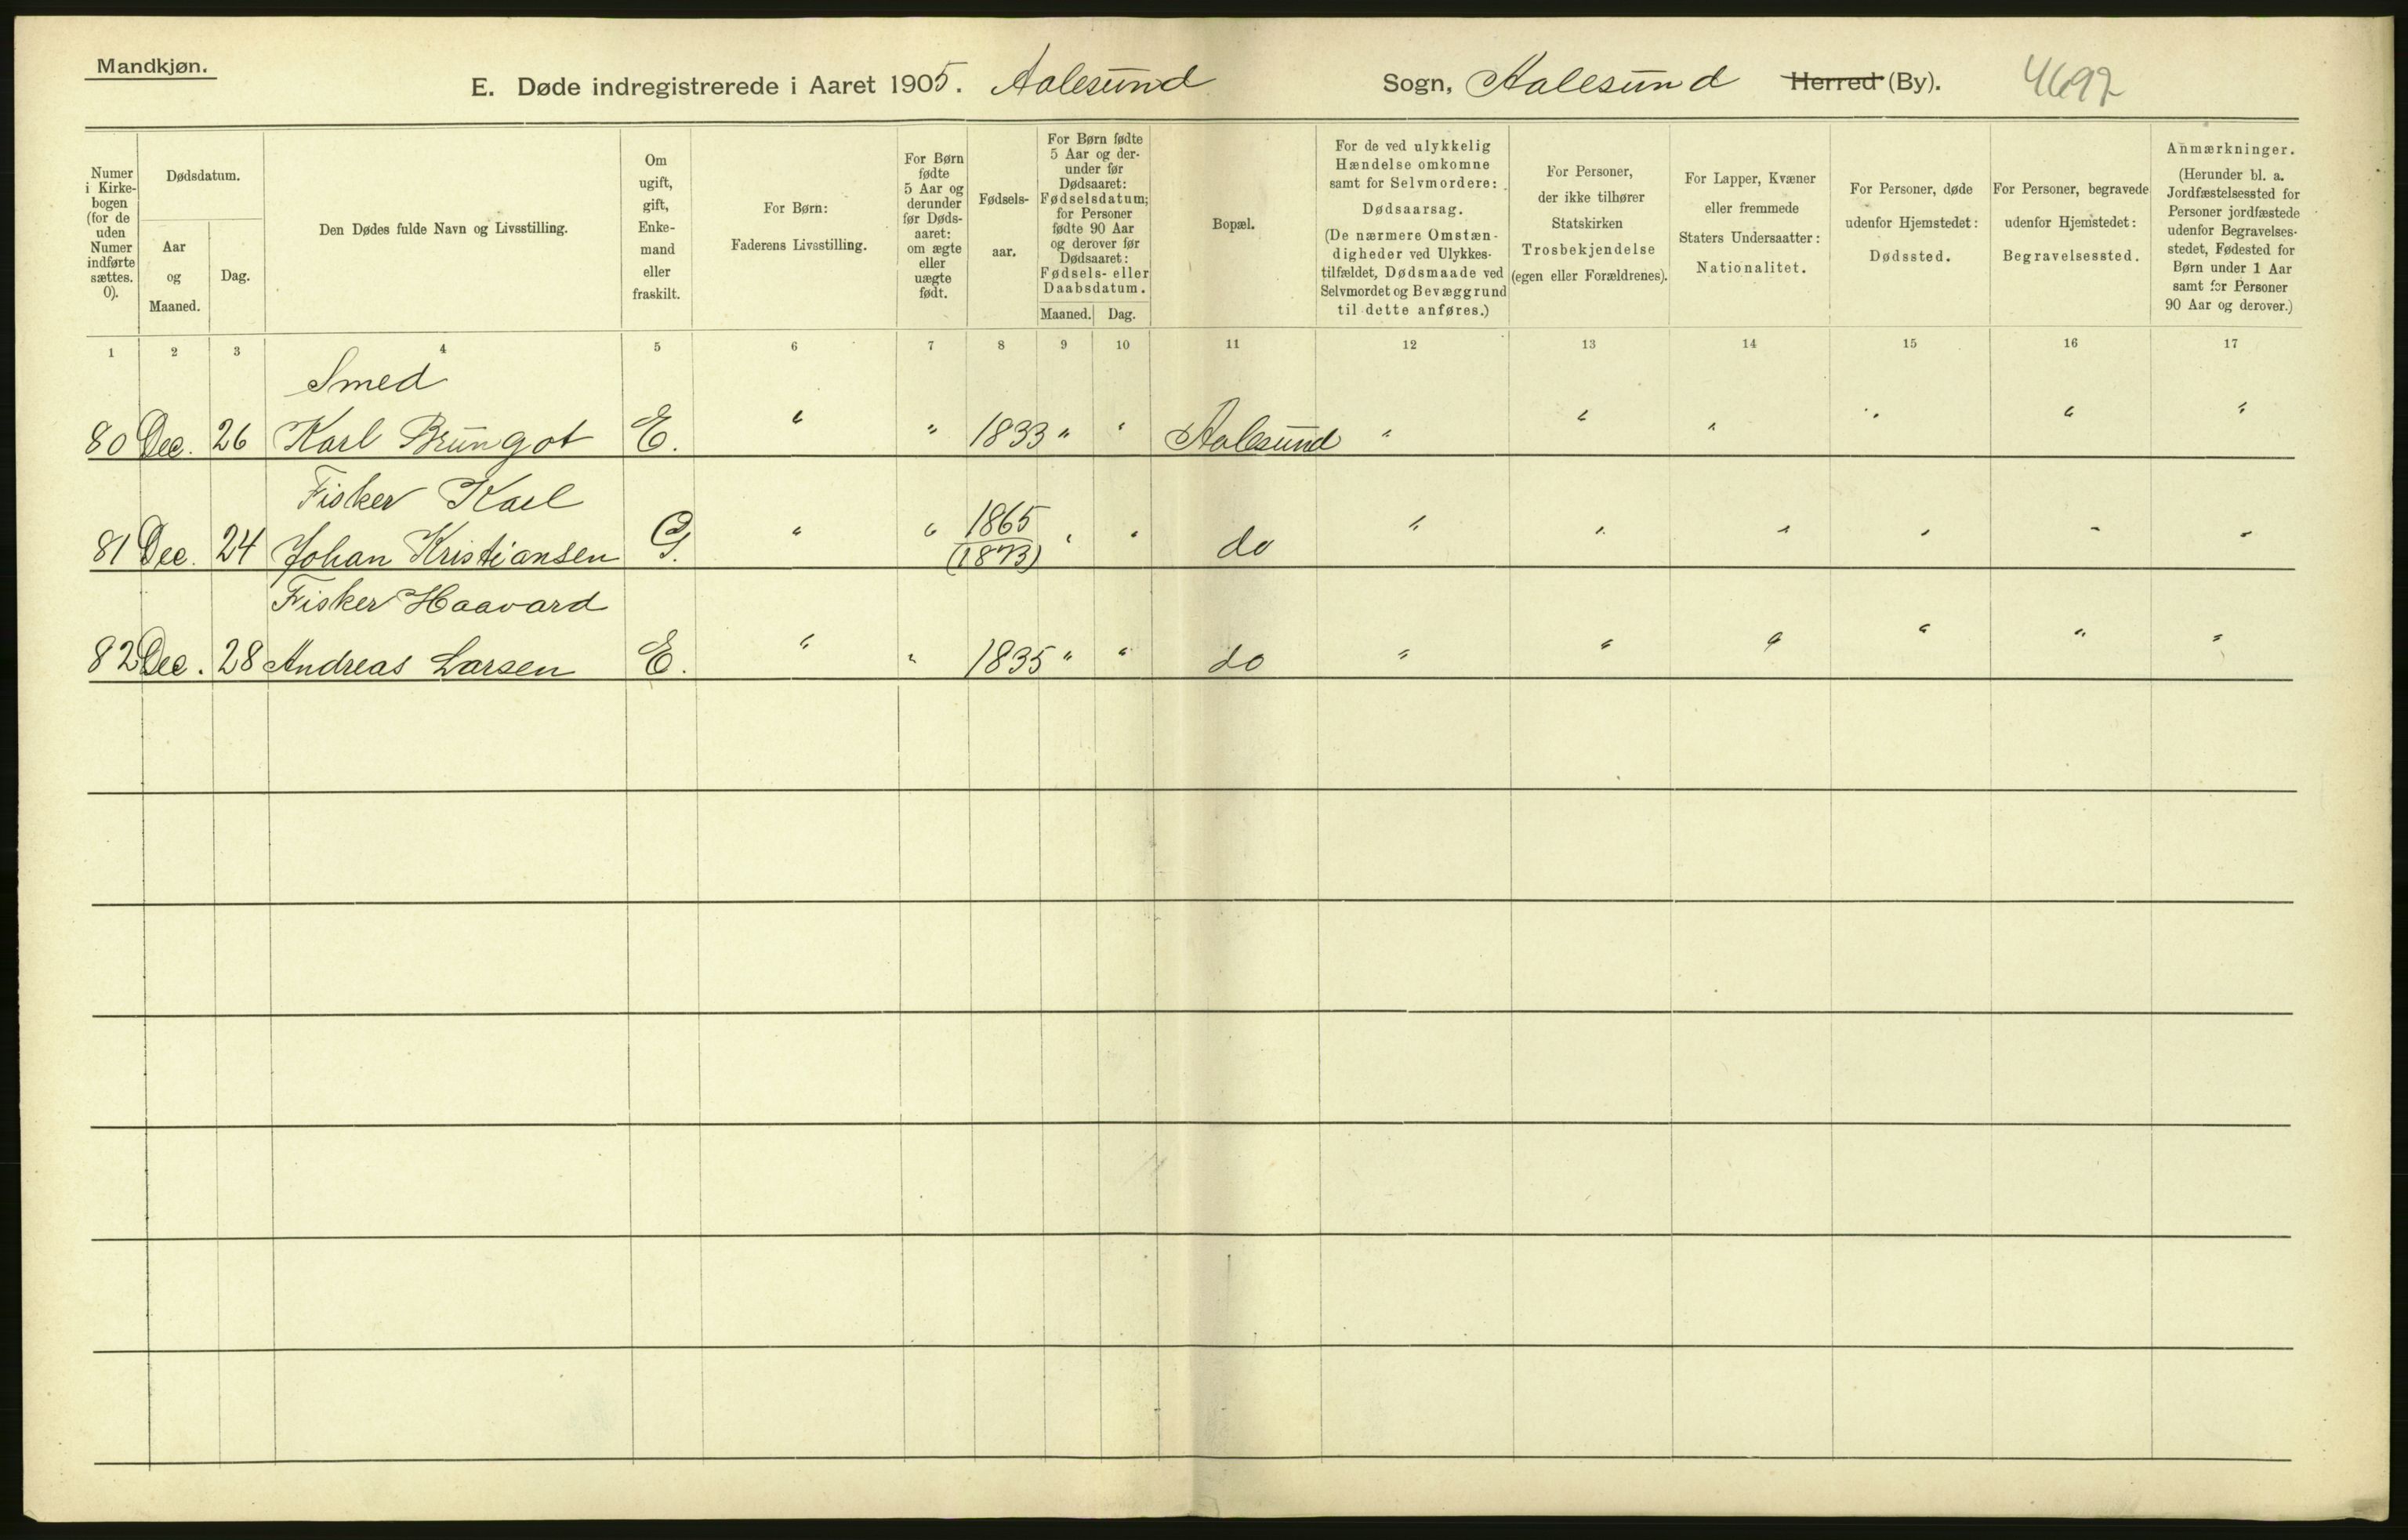 Mandkjøn.
E. Døde indregistrerede i Aaret 1905. Aalesund Sogn, Aalesund Herred (By). 4692
Numer i Kirkebogen (for de uden Numer indførte sættes. 0).
Dødsdatum.
Aar og Maaned.
Dag.
Den Dødes fulde Navn og Livsstilling.
Om ugift, gift, Enkemand eller fraskilt.
For Børn: Faderens Livsstilling.
For Børn fødte 5 Aar og derunder før Dødsaaret: om ægte eller uægte født.
Fødselsaar.
For Børn fødte 5 Aar og derunder før Dødsaaret: Fødselsdatum; for Personer fødte 90 Aar og derover før Dødsaaret: Fødsels- eller Daabsdatum.
Maaned. Dag.
Bopæl.
For de ved ulykkelig Hændelse omkomne samt for Selvmordere: Dødsaarsag. (De nærmere Omstændigheder ved Ulykkestilfældet, Dødsmaade ved Selvmordet og Bevæggrund til dette anføres.)
For Personer, der ikke tilhører Statskirken Trosbekjendelse (egen eller Forældrenes).
For Lapper, Kvæner eller fremmede Staters Undersaatter: Nationalitet.
For Personer, døde udenfor Hjemstedet: Dødssted.
For Personer, begravede udenfor Hjemstedet: Begravelsessted.
Anmærkninger. (Herunder bl. a. Jordfæstelsessted for Personer jordfæstede udenfor Begravelsesstedet, Fødested for Børn under 1 Aar samt for Personer 90 Aar og derover.)
1 2 3 4 5 6 7 8 9 10 11 12 13 14 15 16 17
Smed
80 Dec. 26 Karl Brungot E. " " 1833 " " Aalesund " " " " " "
Fisker Karl
81 Dec. 24 Johan Kristiansen G. " " 1865 (1873) " " do " " " " " "
Fisker Haavard
82 Dec. 28 Andreas Larsen E. " " 1835 " " do " " " " " "